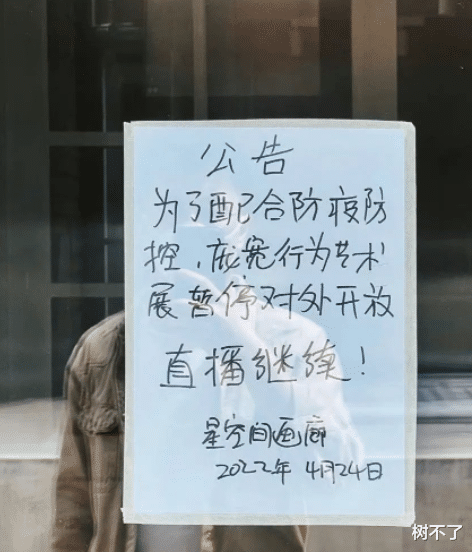 公告
为了配合防疫防
控，成宽行为艺术
展暂停对外开放
直播继续！
星空间画廊
2022年 4月24日
树不了